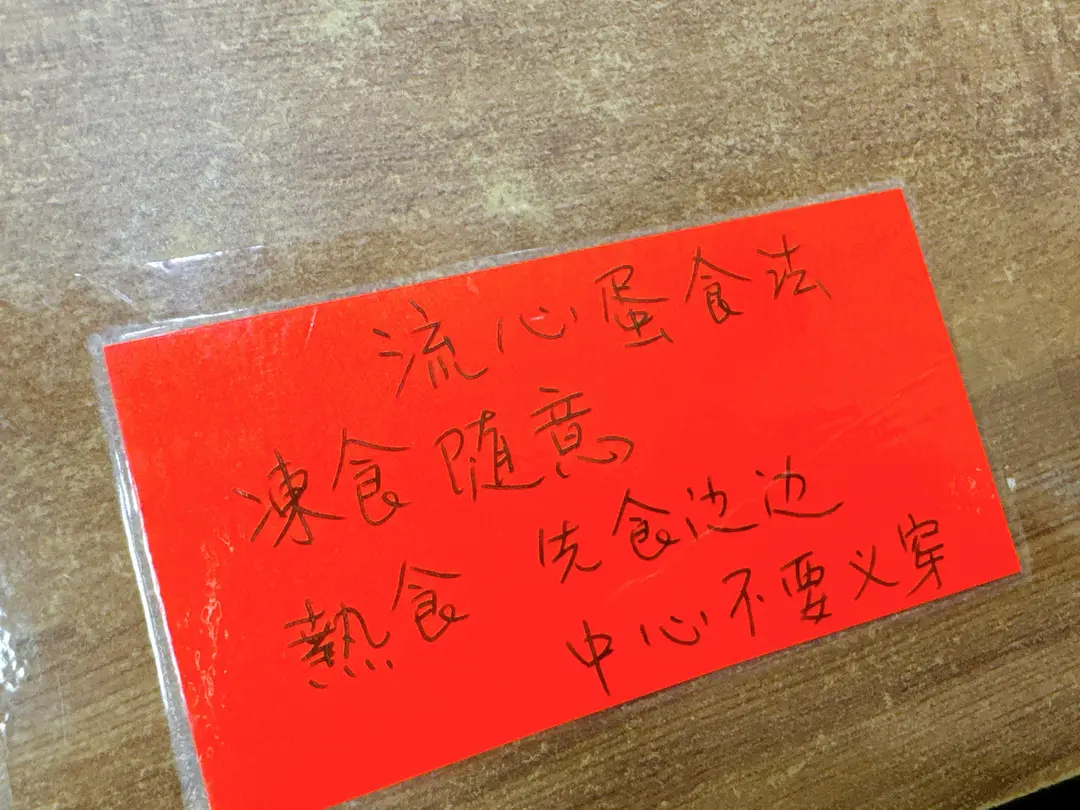 流心蛋食法
凍食随意
熱食 先食边边
中心不要义穿